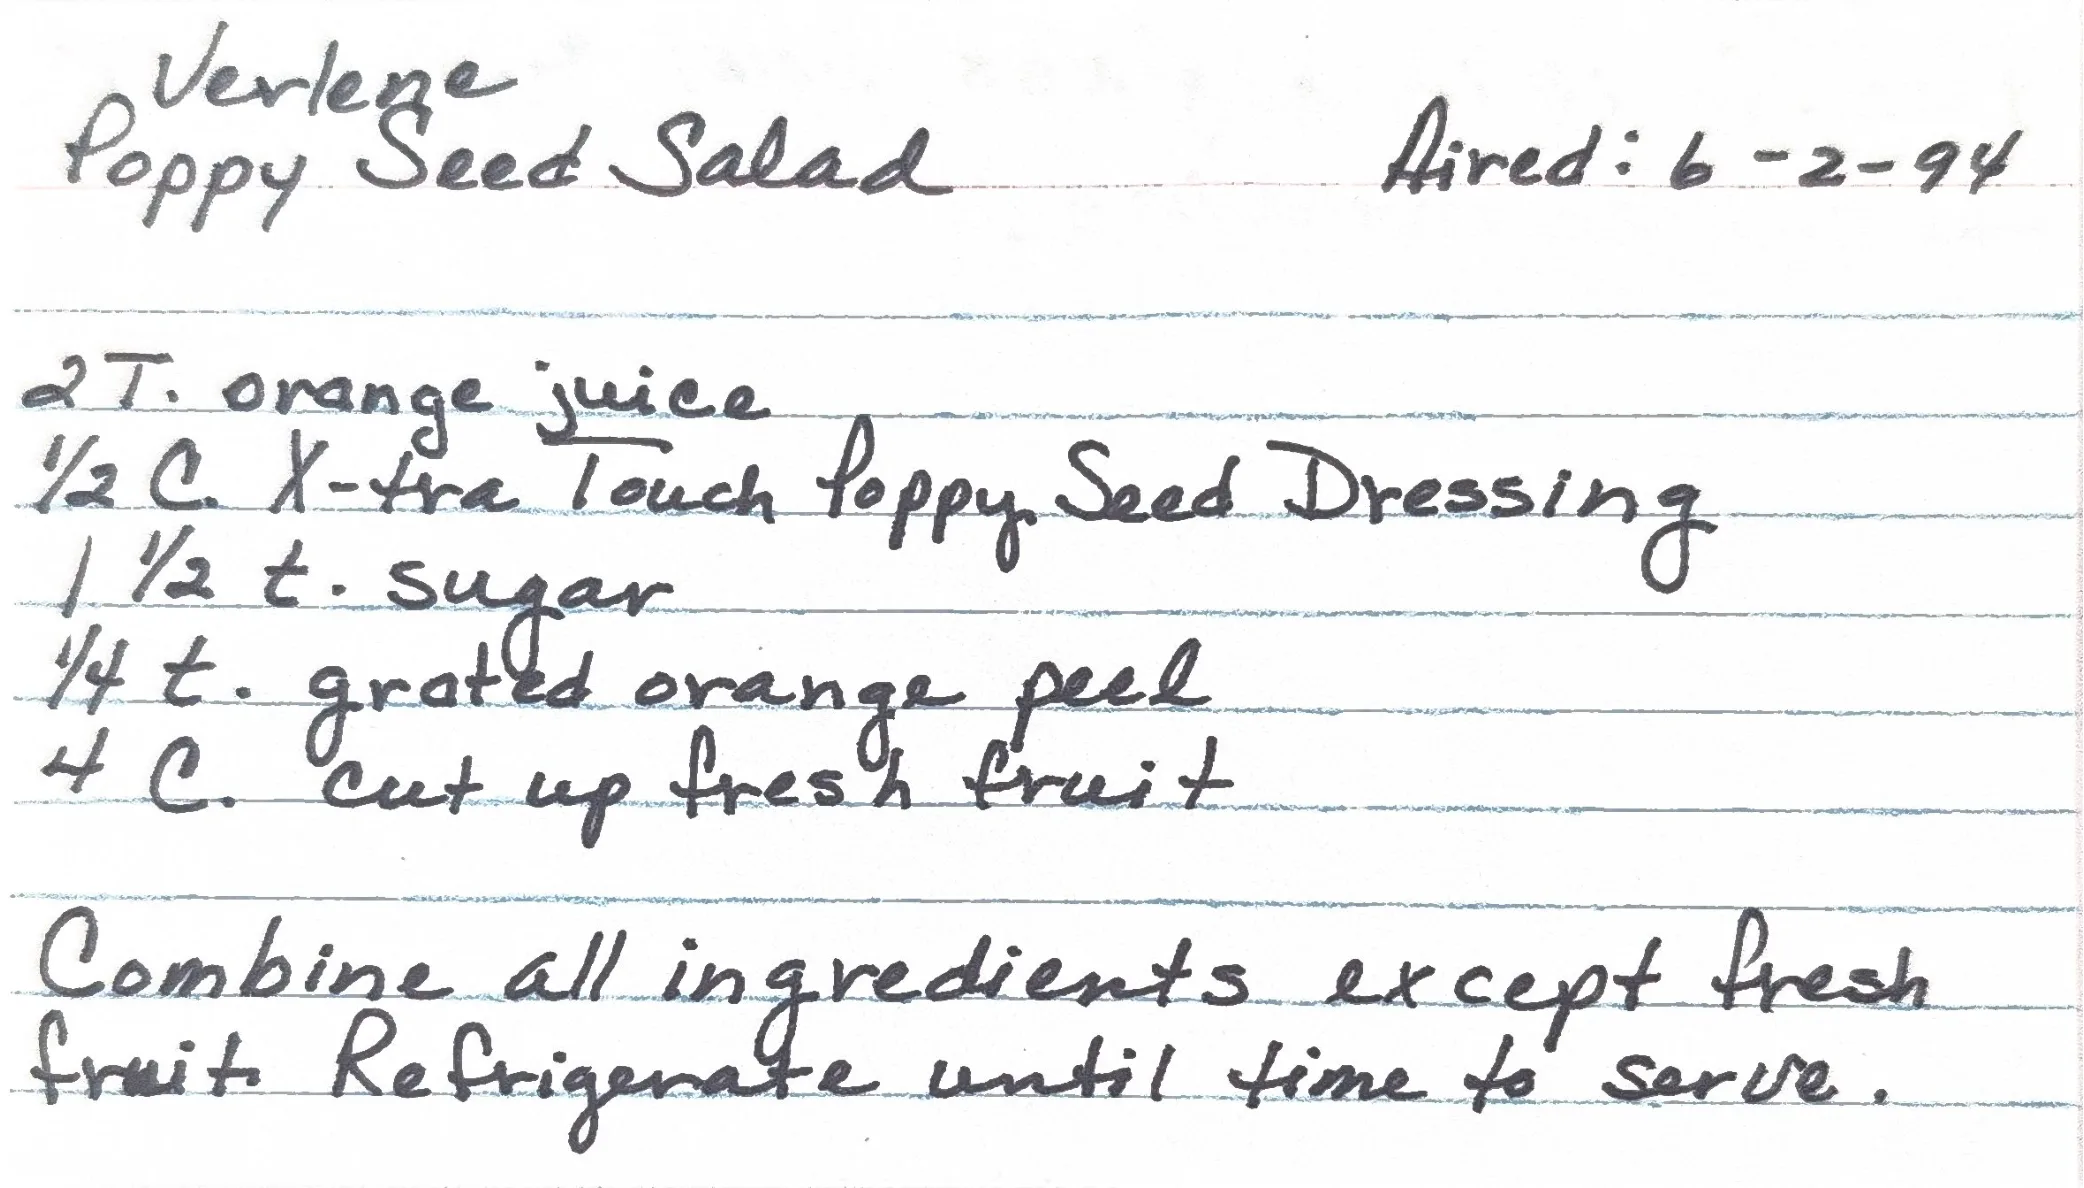 Verlene
Poppy Seed Salad Aired: 6-2-94
2 T. orange juice
1/2 C. X-tra Touch Poppy Seed Dressing
1 1/2 t. sugar
1/4 t. grated orange peel
4 C. cut up fresh fruit
Combine all ingredients except fresh
fruit. Refrigerate until time to serve.